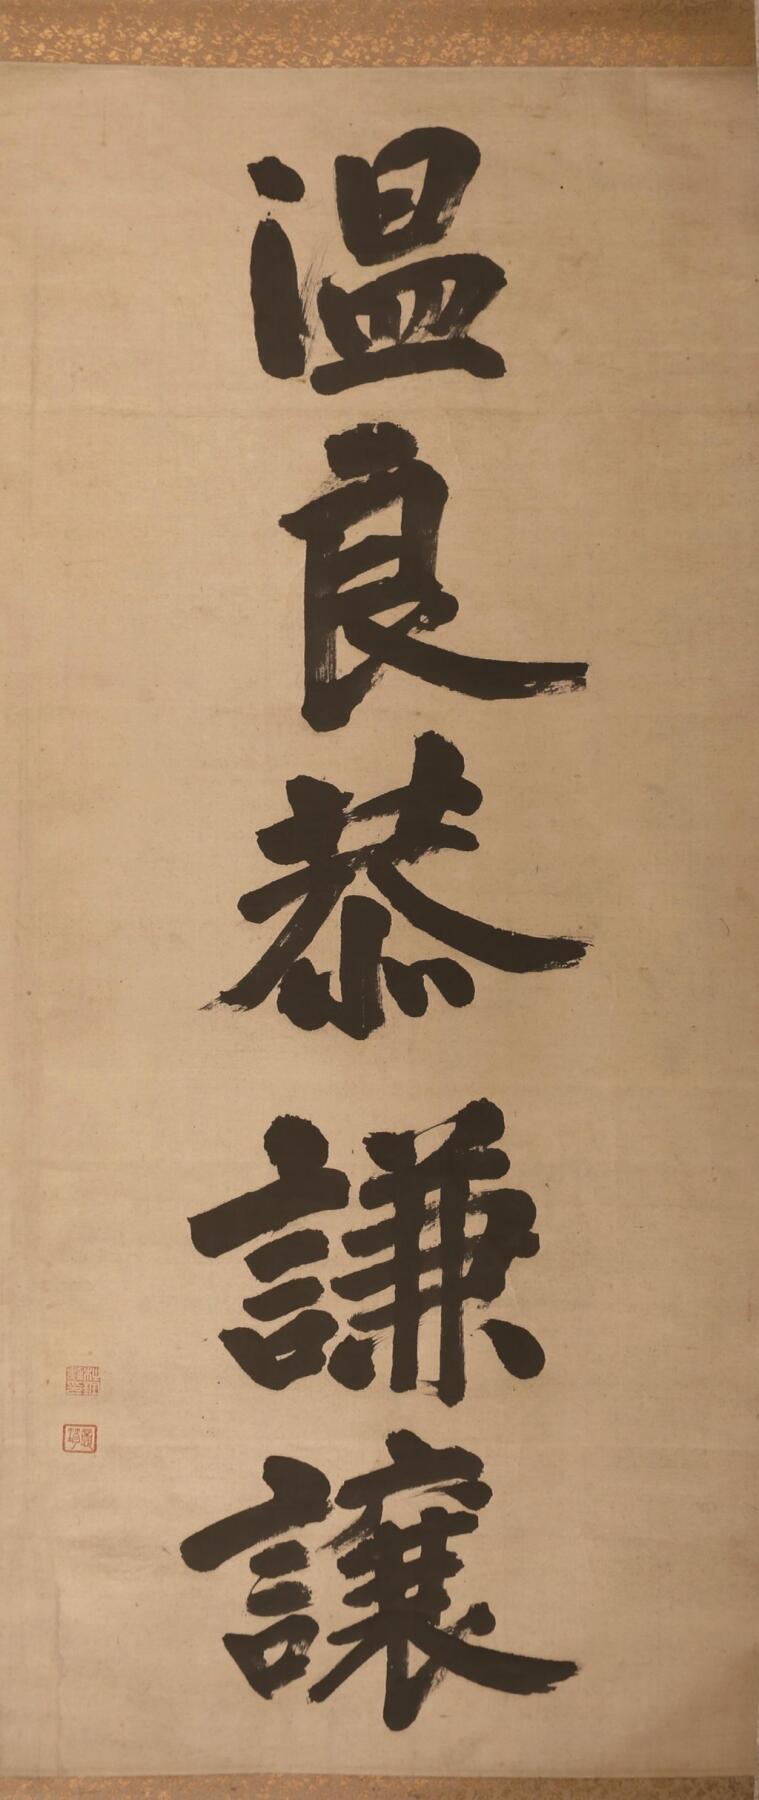 温良恭謙譲